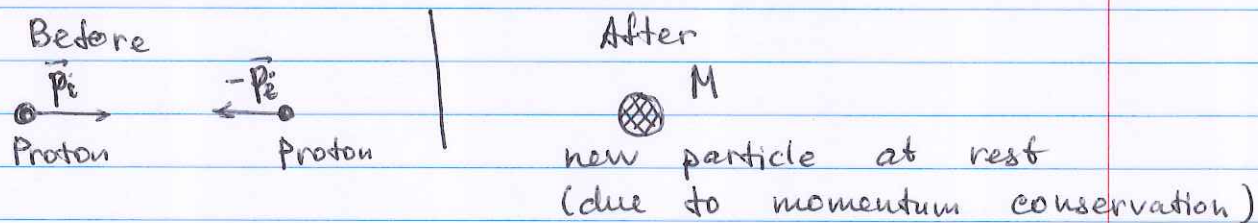 Before After
p⃗i -p⃗i M
Proton Proton new particle at rest
(due to momentum conservation)